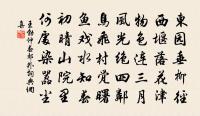 東園垂柳徑
西堰落花津
物色連三月
風光絕四鄰
鳥飛村覺曙
魚戲水知春
初晴山院里
何處染囂塵
王勃仲春郊外詞典網
集